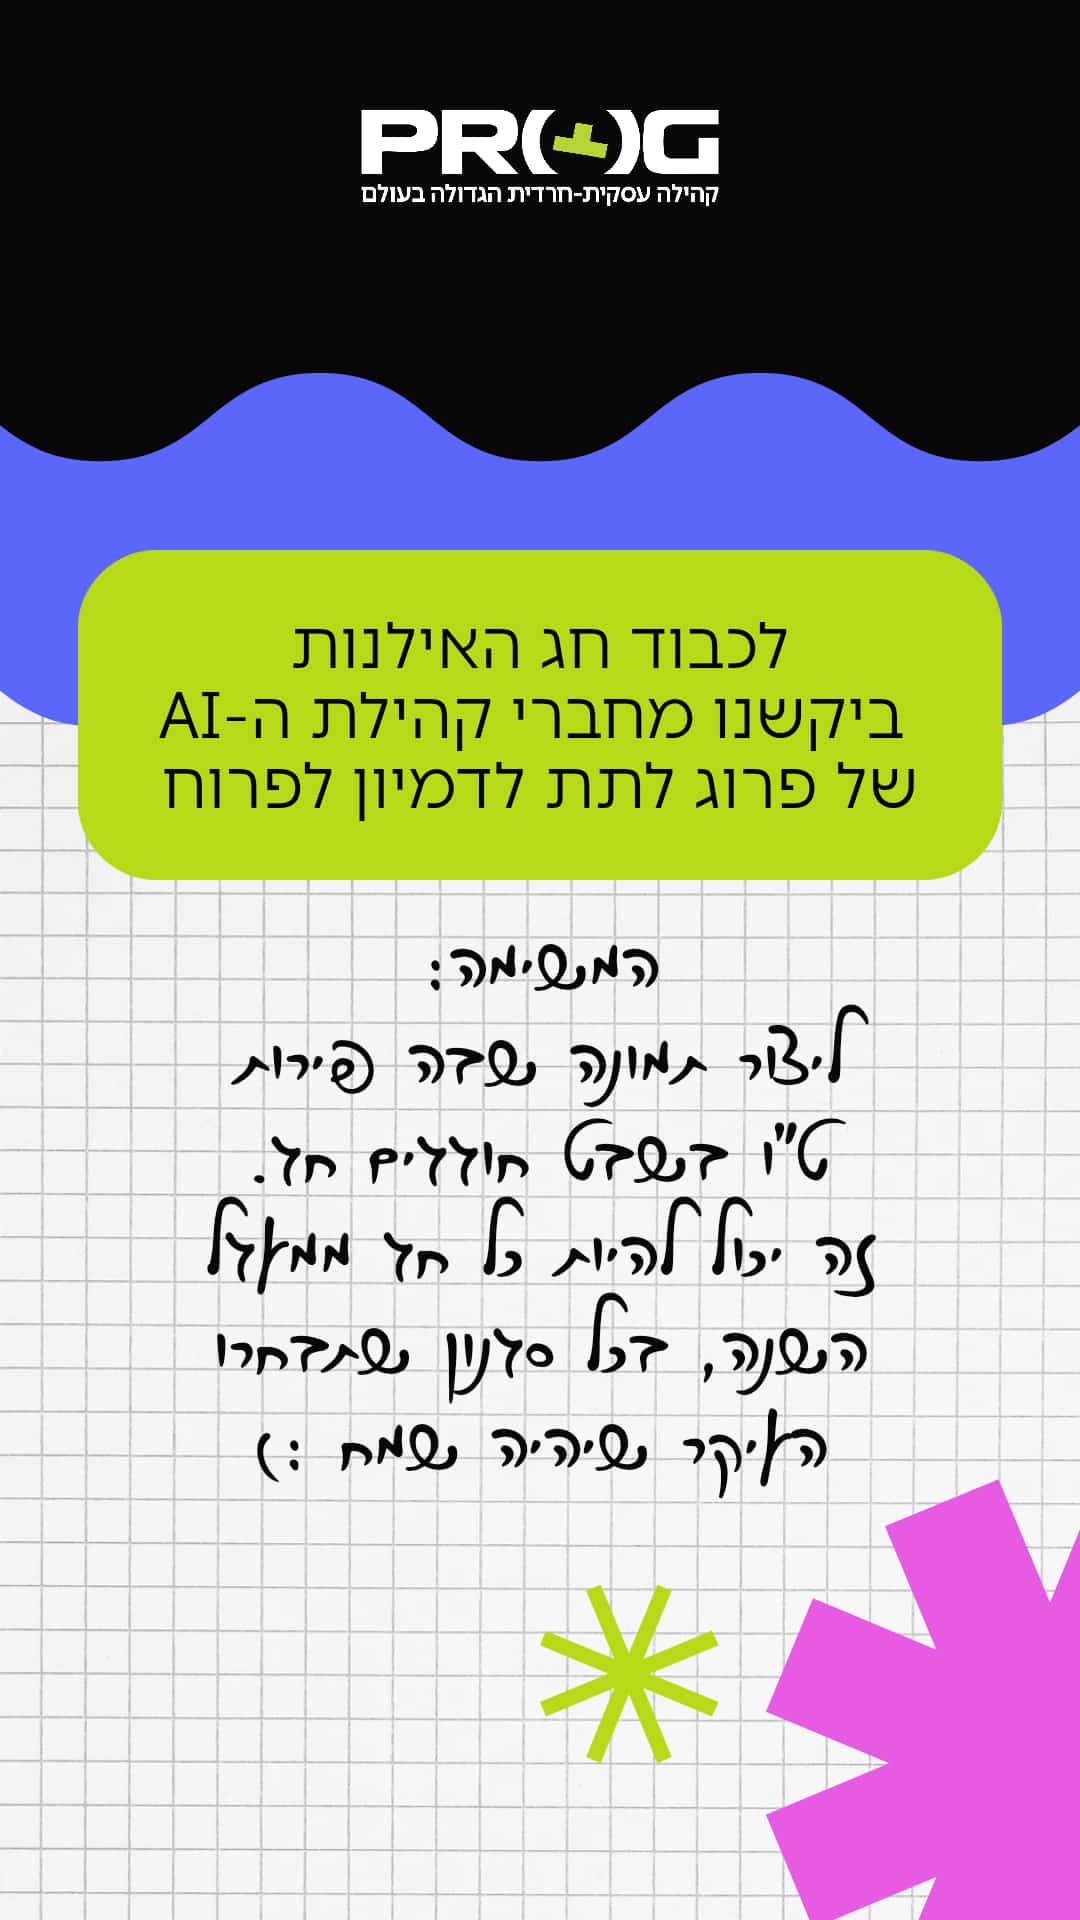 PROG
קהילה עסקית-חרדית הגדולה בעולם
לכבוד חג האילנות
ביקשנו מחברי קהילת ה-AI
של פרוג לתת לדמיון לפרוח
המשימה:
ליצור תמונה שבה פירות
ט"ו בשבט חוגגים חג.
זה יכול להיות כל חג ממעגל
השנה, בכל סגנון שתבחרו
העיקר שיהיה שמח :)